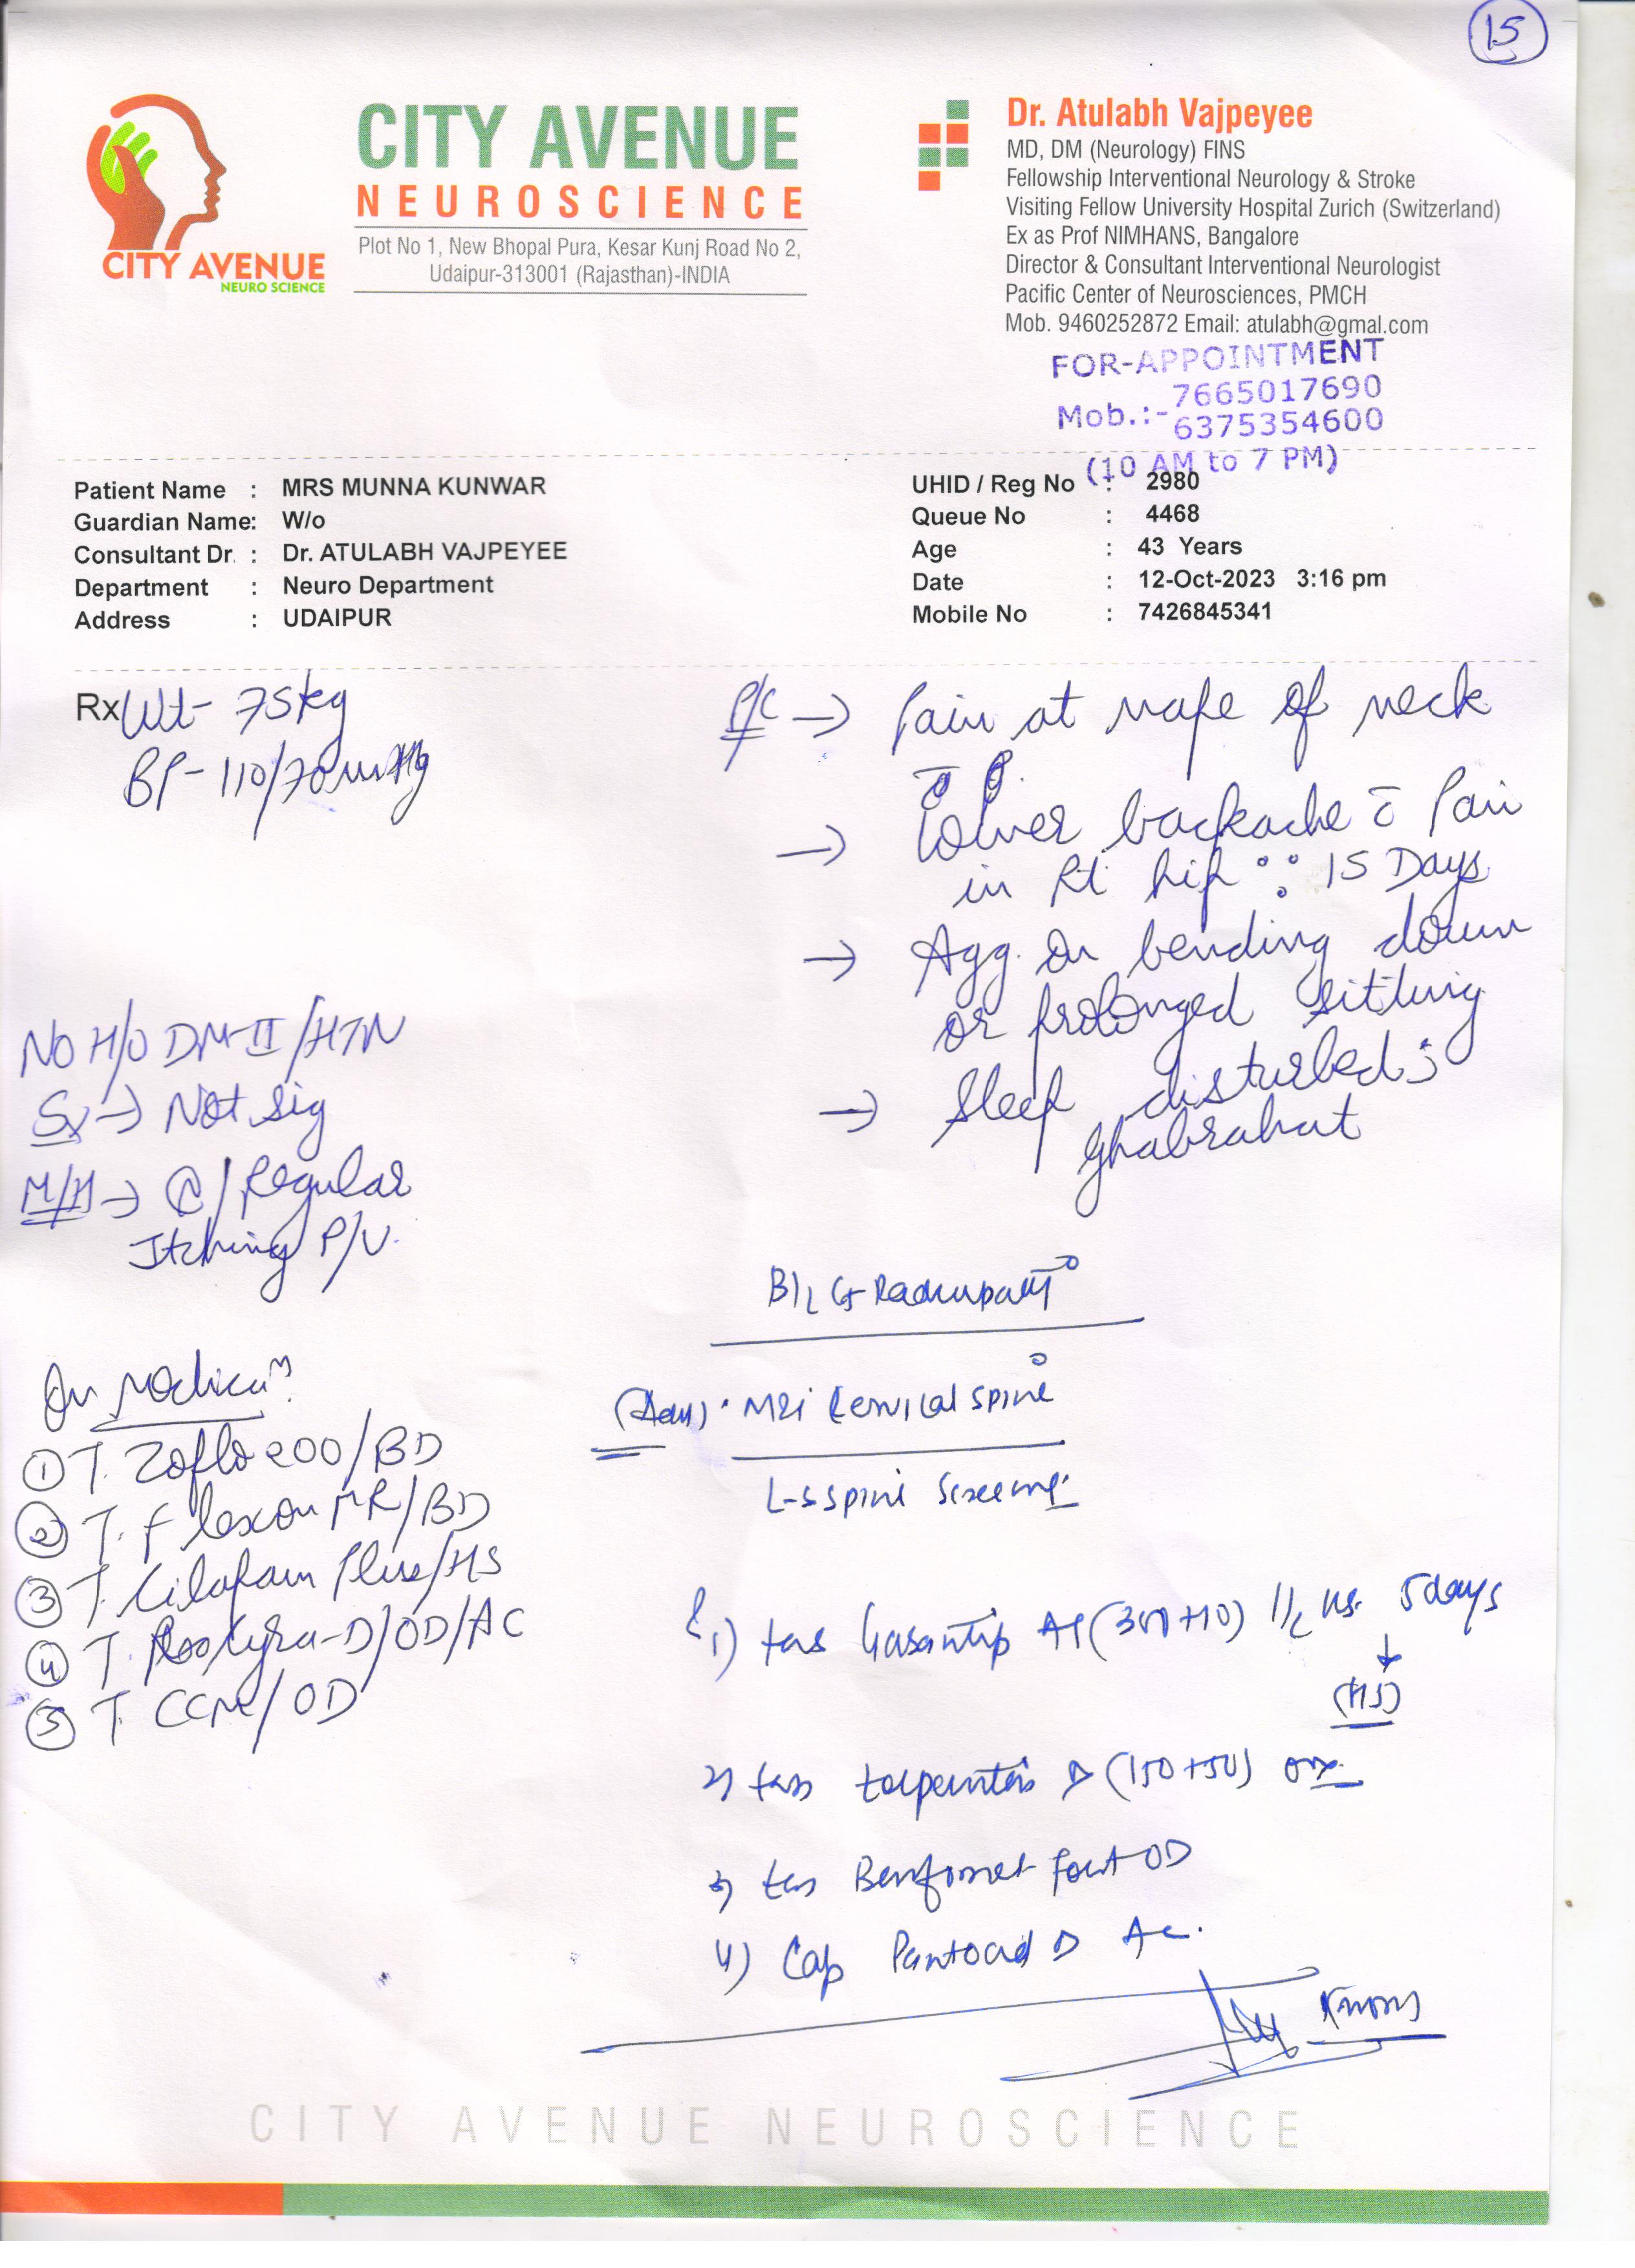 15
CITY AVENUE
NEURO SCIENCE
CITY AVENUE
NEUROSCIENCE
Plot No 1, New Bhopal Pura, Kesar Kunj Road No 2,
Udaipur-313001 (Rajasthan)-INDIA
Dr. Atulabh Vajpeyee
MD, DM (Neurology) FINS
Fellowship Interventional Neurology & Stroke
Visiting Fellow University Hospital Zurich (Switzerland)
Ex as Prof NIMHANS, Bangalore
Director & Consultant Interventional Neurologist
Pacific Center of Neurosciences, PMCH
Mob. 9460252872 Email: atulabh@gmal.com
FOR-APPOINTMENT
7665017690
Mob.:- 6375354600
(10 AM to 7 PM)
Patient Name : MRS MUNNA KUNWAR
Guardian Name: W/o
Consultant Dr. : Dr. ATULABH VAJPEYEE
Department : Neuro Department
Address : UDAIPUR
UHID / Reg No : 2980
Queue No : 4468
Age : 43 Years
Date : 12-Oct-2023 3:16 pm
Mobile No : 7426845341
Rx Wt- 75kg
BP- 110/70mmHg
P/C → Pain at nape of neck
→ Lower backache c̄ Pain
in Rt hip 15 Days
→ Agg. on bending down
or prolonged sitting
→ Sleep disturbed;
Ghabrahat
NO H/O DM-II/HTN
Sx → Not sig
M/H → Regular
Itching P/V.
B/L
MRI Cervical spine
L-S spine Screening
On
① T. Zoflo 200/BD
② T. Flexon MR/BD
③ T. Cilapam Plus/HS
④ T. -D/OD/AC
⑤ T. CCM/OD
1) tab 5 days
↓
(HS)
2) tab D (150+50)
3) tab Benfomet Fort OD
4) Cap Pantocid D AC.
CITY AVENUE NEUROSCIENCE